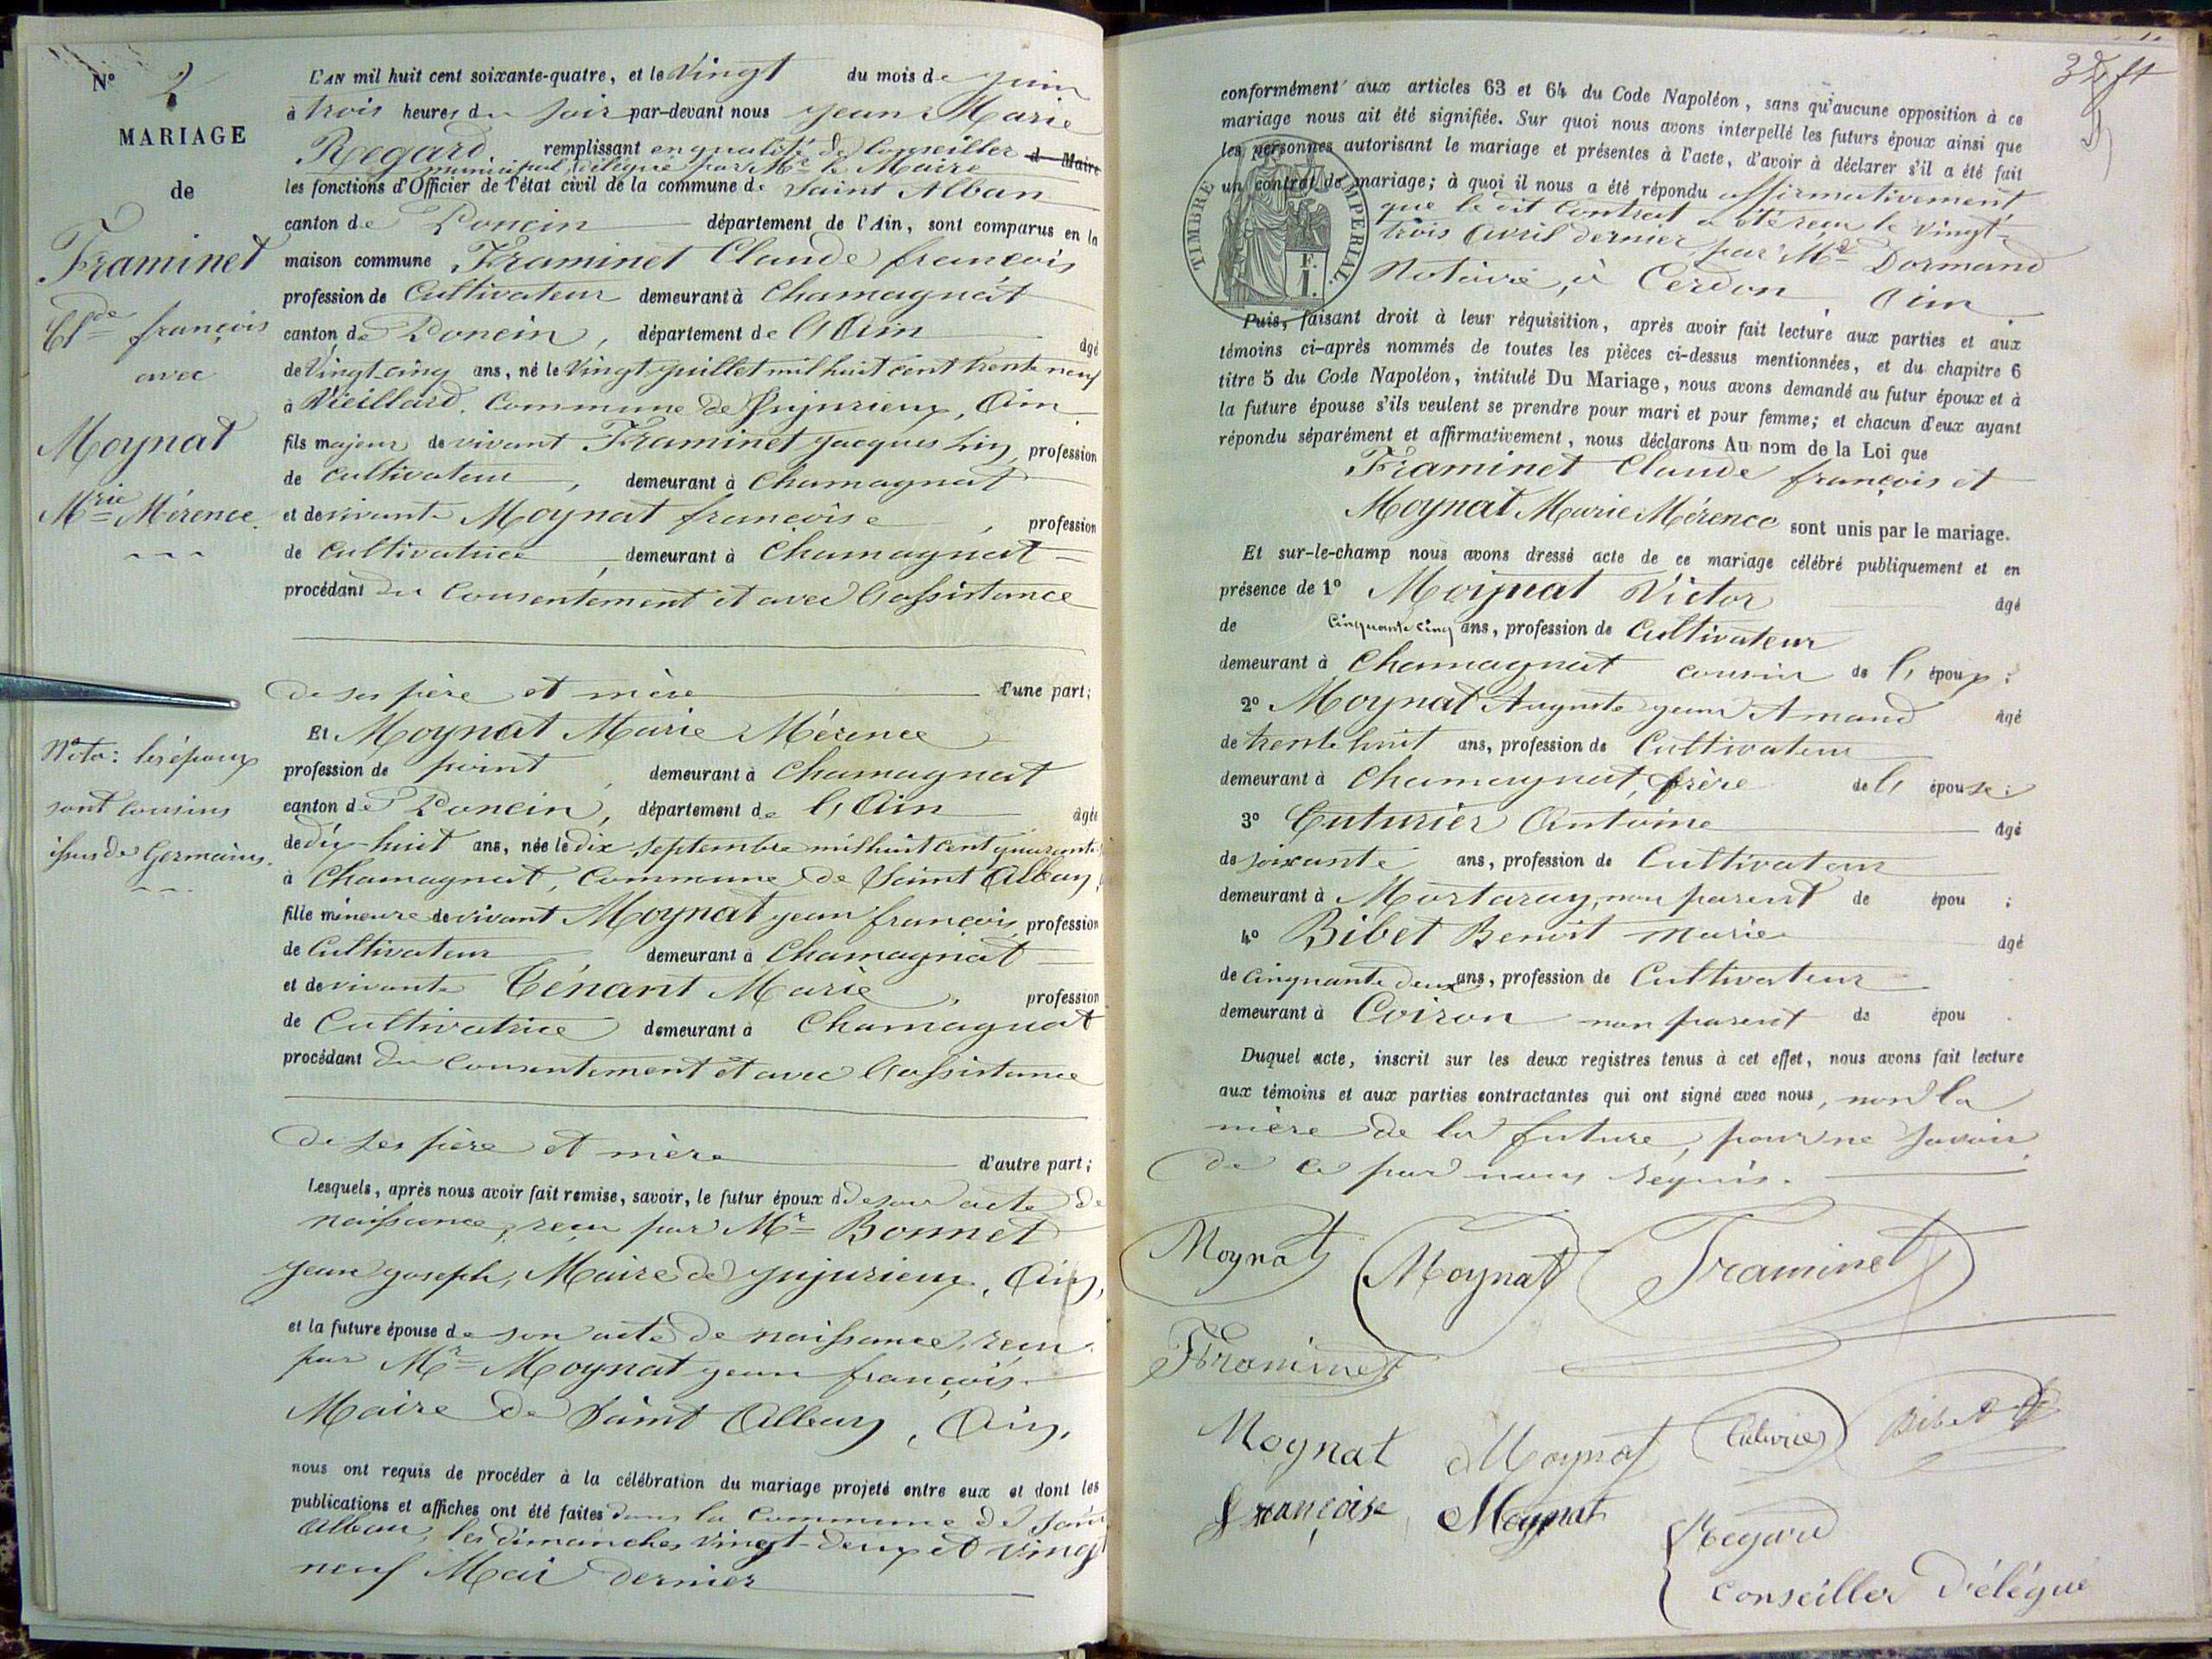 N° 2
MARIAGE
de
Framinet
Cl^de françois
avec
Moynat
M^rie Mérence.
Nota: les époux
sont cousins
issus de Germains.
L'AN mil huit cent soixante-quatre, et le Vingt du mois de juin
à trois heures du soir par-devant nous Jean Marie
Regard, remplissant en qualité de Conseiller d Maire
municipal, délégué par M^r le Maire
les fonctions d'Officier de l'état civil de la commune de Saint Alban
canton de Poncin département de l'Ain, sont comparus en la
maison commune Framinet Claude françois
profession de Cultivateur demeurant à Chamagnat
canton de Poncin, département de l'Ain âgé
de Vingt cinq ans, né le Vingt juillet mil huit cent trente neuf
à Vieillard, Commune de Jujurieux, Ain
fils majeur de vivant Framinet Jacques profession
de cultivateur, demeurant à Chamagnat
et de vivante Moynat françoise, profession
de cultivatrice, demeurant à Chamagnat
procédant du Consentement et avec l'assistance
de ses père et mère d'une part;
Et Moynat Marie Mérence
profession de point, demeurant à Chamagnat
canton de Poncin, département de l'Ain âgée
de dix-huit ans, née le dix septembre mil huit cent quarante
à Chamagnat, Commune de Saint Alban,
fille mineure de vivant Moynat Jean françois, profession
de Cultivateur demeurant à Chamagnat
et de vivante Ténant Marie, profession
de Cultivatrice demeurant à Chamagnat
procédant du Consentement et avec l'assistance
de ses père et mère d'autre part;
Lesquels, après nous avoir fait remise, savoir, le futur époux d de son acte de
naissance, reçu par M^r Bonnet
Jean Joseph, Maire de Jujurieux, Ain,
et la future épouse de son acte de naissance, reçu
par M^r Moynat Jean françois
Maire de Saint Alban, Ain,
nous ont requis de procéder à la célébration du mariage projeté entre eux et dont les
publications et affiches ont été faites dans la Commune de Saint
Alban, les dimanches vingt-deux et vingt
neuf Mai dernier
conformément aux articles 63 et 64 du Code Napoléon, sans qu'aucune opposition à ce
mariage nous ait été signifiée. Sur quoi nous avons interpellé les futurs époux ainsi que
les personnes autorisant le mariage et présentes à l'acte, d'avoir à déclarer s'il a été fait
un contrat de mariage; à quoi il nous a été répondu affirmativement
que le dit Contrat a été reçu le vingt-
trois Avril dernier par M^e Dormand
Notaire, à Cerdon, Ain
TIMBRE IMPÉRIAL
F.
1.
Puis, faisant droit à leur réquisition, après avoir fait lecture aux parties et aux
témoins ci-après nommés de toutes les pièces ci-dessus mentionnées, et du chapitre 6
titre 5 du Code Napoléon, intitulé Du Mariage, nous avons demandé au futur époux et à
la future épouse s'ils veulent se prendre pour mari et pour femme; et chacun d'eux ayant
répondu séparément et affirmativement, nous déclarons Au nom de la Loi que
Framinet Claude françois et
Moynat Marie Mérence sont unis par le mariage.
Et sur-le-champ nous avons dressé acte de ce mariage célébré publiquement et en
présence de 1° Moynat Victor âgé
de Cinquante cinq ans, profession de Cultivateur
demeurant à Chamagnat cousin de l' époux;
2° Moynat Auguste Jean Amand âgé
de trente huit ans, profession de Cultivateur
demeurant à Chamagnat, frère de l' épouse;
3° Cuturier Antoine âgé
de soixante ans, profession de Cultivateur
demeurant à Mortaray, non parent de épou ;
4° Bibet Benoit Marie âgé
de Cinquante deux ans, profession de Cultivateur
demeurant à Coiron non parent de épou .
Duquel acte, inscrit sur les deux registres tenus à cet effet, nous avons fait lecture
aux témoins et aux parties contractantes qui ont signé avec nous, non la
mère de la future, pour ne savoir
de ce par nous requis.
Moynat Moynat Framinet
Framinet
Moynat Moynat Cuturier Bibet
françoise Moynat
Regard
Conseiller Délégué